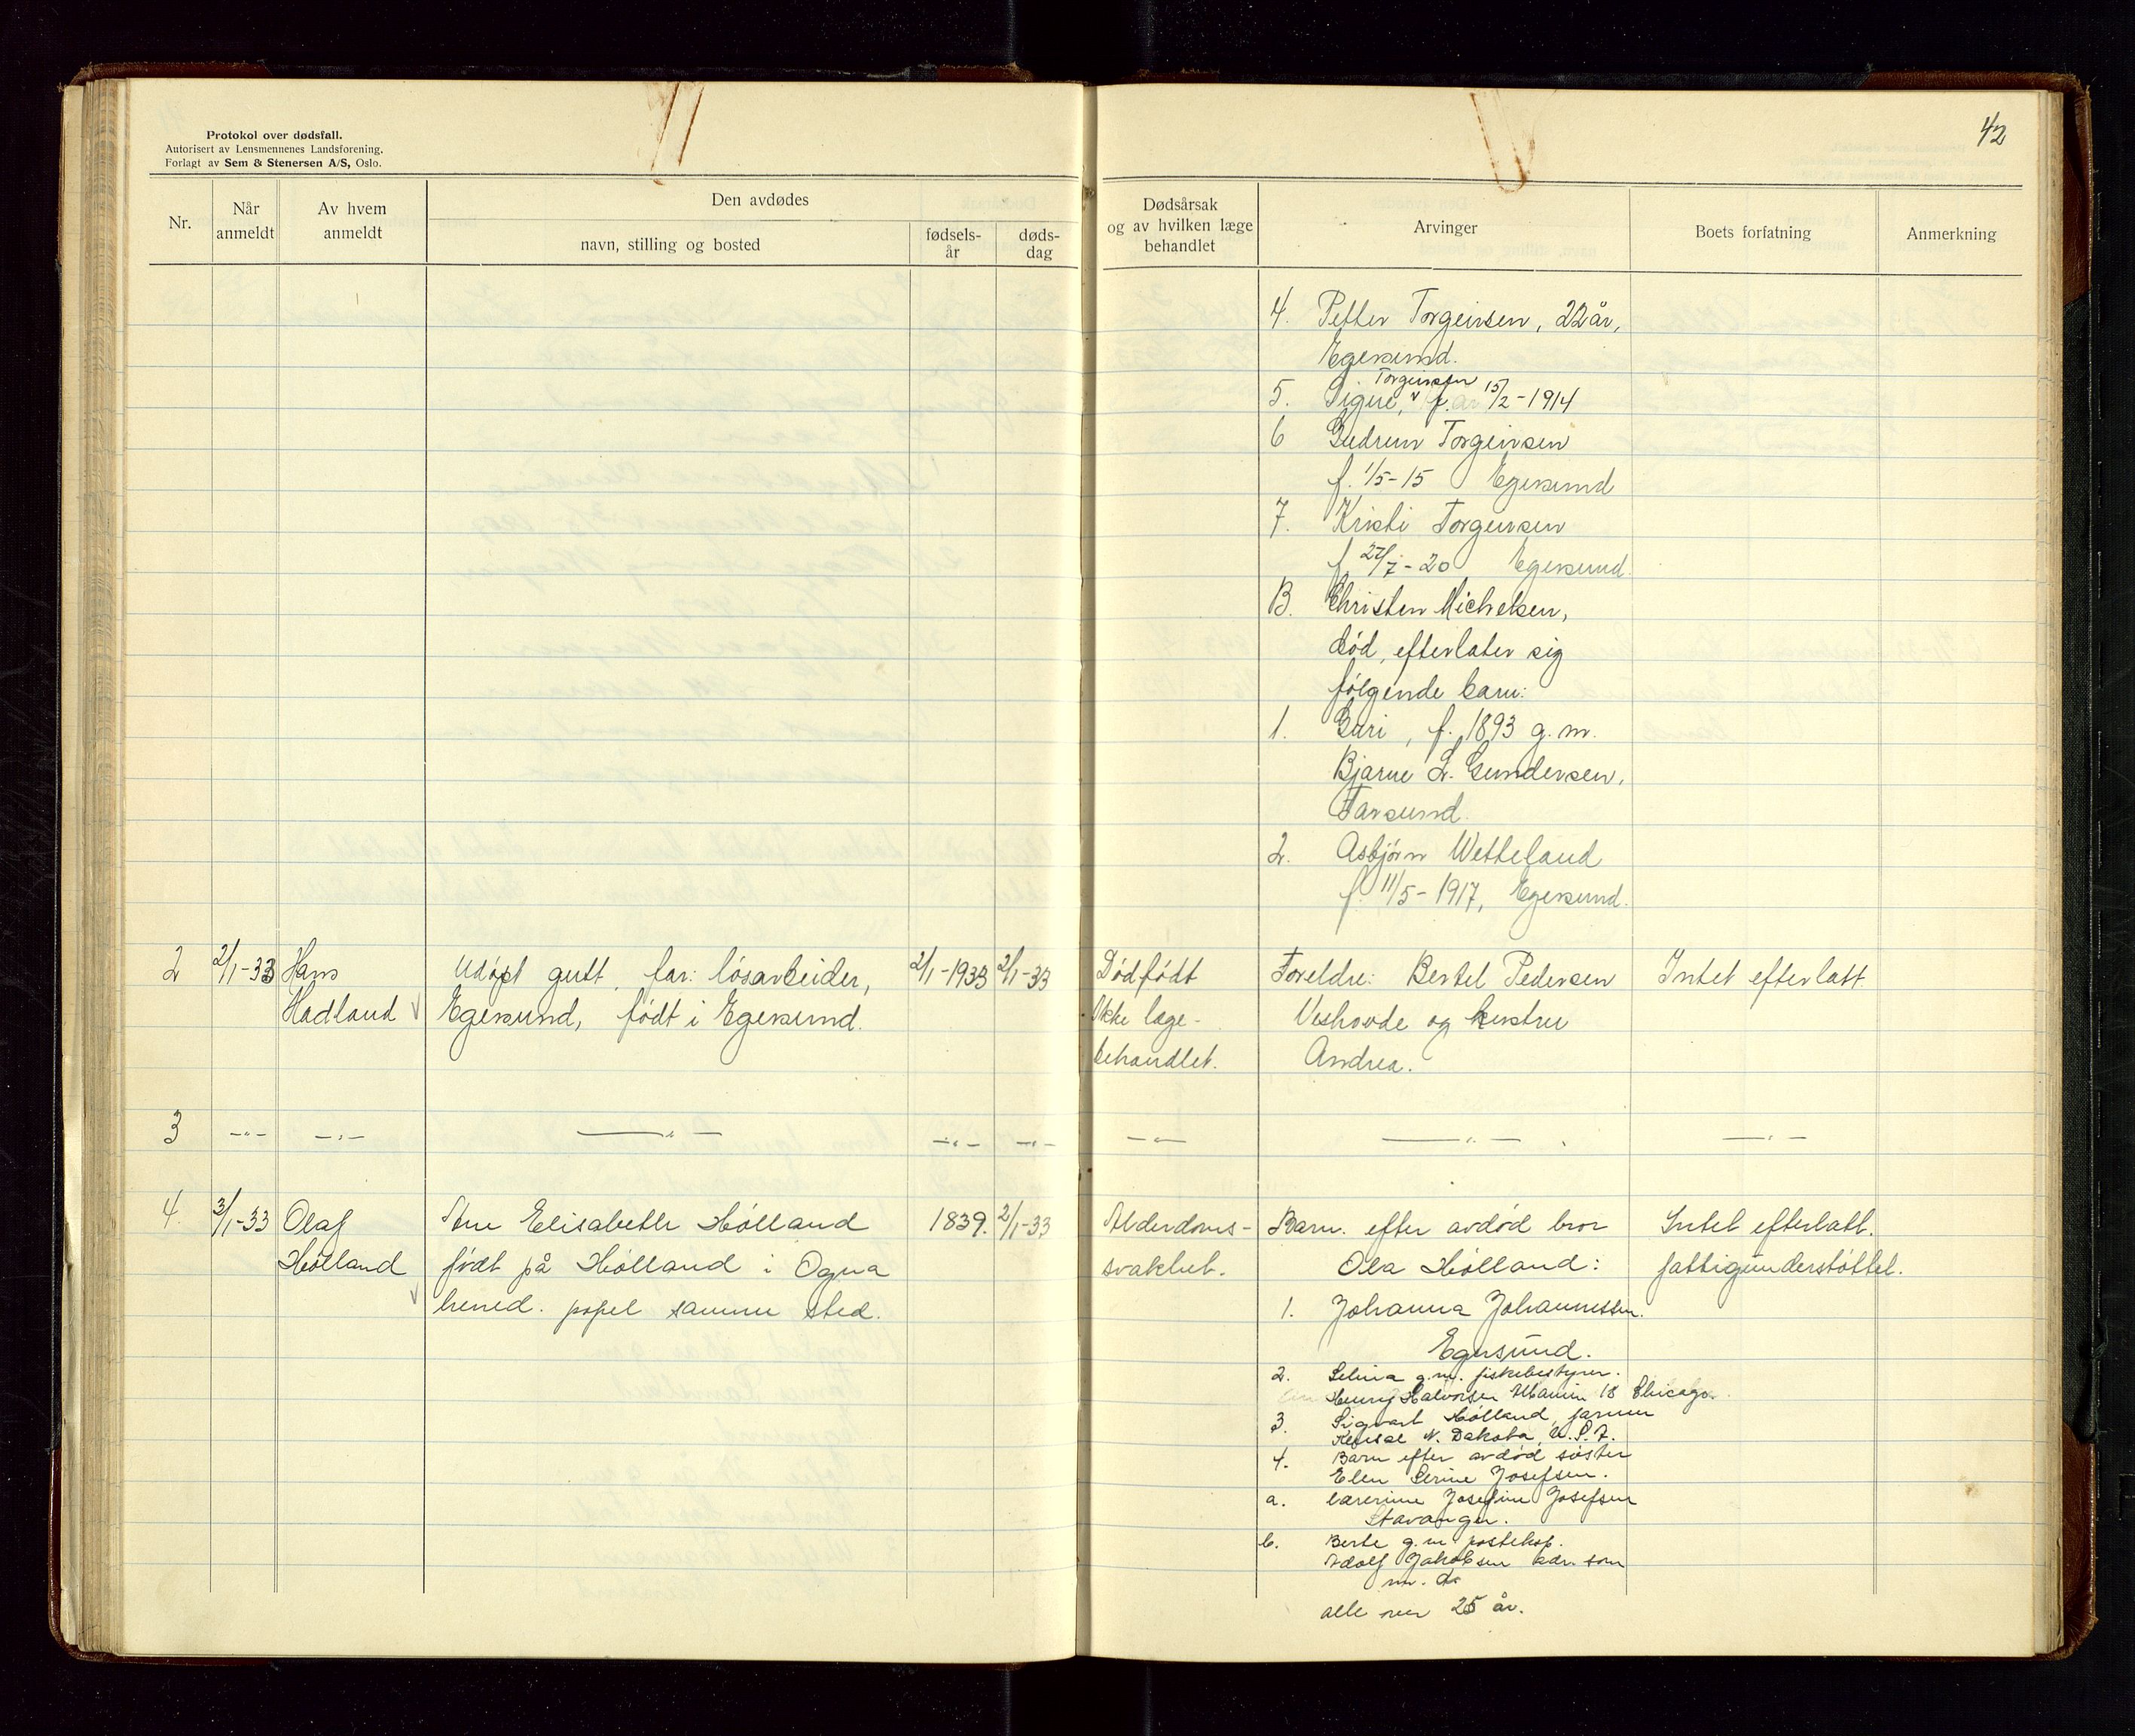 Protokol over dødsfall.
Autorisert av Lensmennenes Landsforening.
Forlagt av Sem & Stenersen A/S, Oslo.
Nr.
Når anmeldt
Av hvem anmeldt
Den avdødes
navn, stilling og bosted
fødsels-år
døds-dag
42
Dødsårsak
og av hvilken læge
behandlet
Arvinger
Boets forfatning
Anmerkning
4. Petter Torgeirsen, 22 år,
Egersund.
Torgeirsen
5. Signe, f. 15/2-1914
6 Gudrun Torgeirsen
f. 1/5-15 Egersund
7. Kristi Torgeirsen
f. 27/7-20 Egersund.
B. Christen Michelsen,
død, efterlater sig
følgende barn:
1. Guri, f. 1893 g.m.
Bjarne L. Gundersen,
Farsund.
2. Asbjørn Wetteland
f. 11/5-1917, Egersund.
2 2/1-33 Hans Udøpt gutt, far: løsarbeider, 2/1-1933 2/1-33
Hadland Egersund, født i Egersund.
Dødfødt Foreldre: Bertel Pedersen Intet efterlatt
Ikke læge- Veshovde og hustru
behandlet. Andrea.
3 -"- -"- -"- -"- -"-
-"- -"- -"-
4. 3/1-33 Olaf Ane Elisabeth Hølland 1839. 2/1-33
Hølland født på Hølland i Ogna
herred. popel samme sted.
Alderdoms- Barn efter avdød bror Intet efterlatt.
svakhet. Ola Hølland: fattigunderstøttet.
1. Johanna Johannessen.
Egersund.
2. Selina g.m. fiskebestyrer.
Henry Halvorsen 18 Chicago.
3. Sigvart Hølland, farmer
Kensal N. Dakota, U.S.A.
4. Barn efter avdød søster
Elen Serine Josefsen.
a. Josefine Josefsen
Stavanger.
b. Berte g.m. posteksp.
Adolf Jakobsen adr. som
nr. do
alle over 25 år.